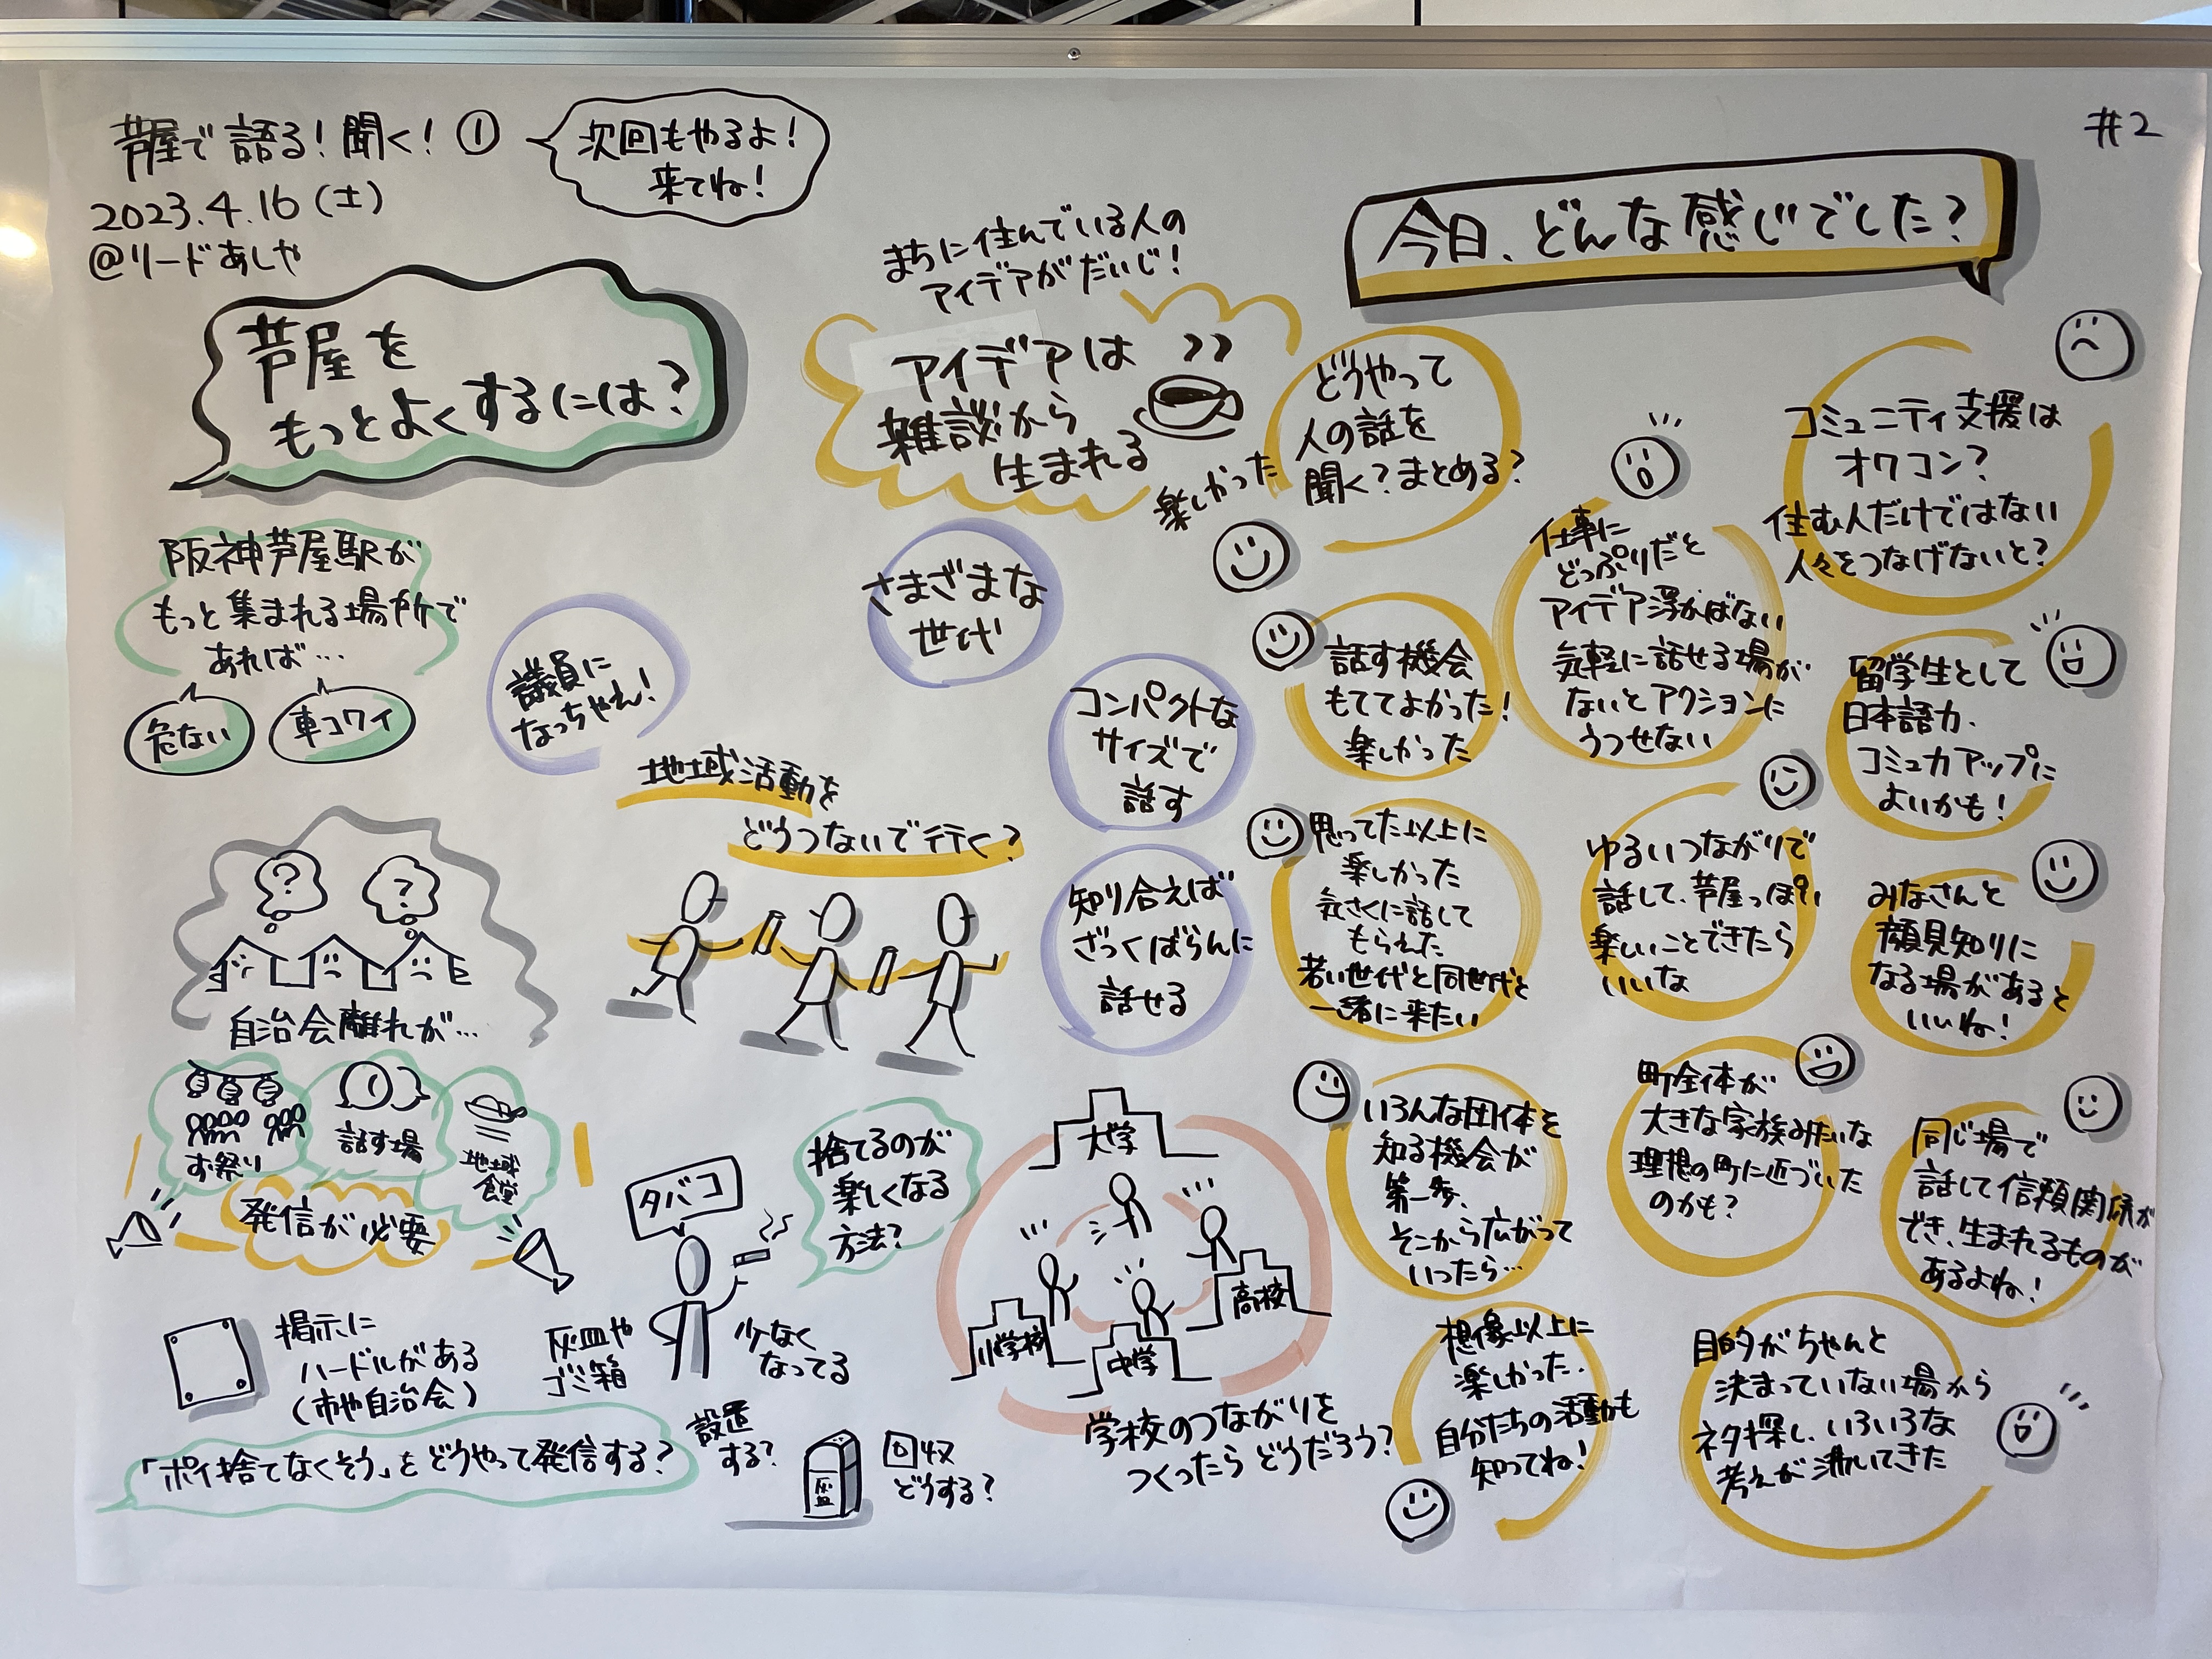 芦屋で語る！聞く！①
2023.4.16（土）
@リードあしや
次回もやるよ！
来てね！
#2
芦屋を
もっとよくするには？
阪神芦屋駅が
もっと集まれる場所で
あれば…
危ない
車コワイ
議員に
なっちゃえ！
？
？
自治会離れが…
お祭り
話す場
地域
食堂
発信が必要
掲示に
ハードルがある
（市や自治会）
「ポイ捨てなくそう」をどうやって発信する？
まちに住んでいる人の
アイデアがだいじ！
アイデアは
雑談から
生まれる
さまざまな
世代
コンパクトな
サイズで
話す
知り合えば
ざっくばらんに
話せる
地域活動を
どうつないで行く？
タバコ
捨てるのが
楽しくなる
方法？
灰皿や
ゴミ箱
少なく
なってる
設置
する？
灰皿
回収
どうする？
大学
高校
小学校
中学
学校のつながりを
つくったらどうだろう？
今日、どんな感じでした？
楽しかった
どうやって
人の話を
聞く？まとめる？
話す機会
もててよかった！
楽しかった
思ってた以上に
楽しかった
気さくに話して
もらえた
若い世代と同世代と
一緒に来たい
いろんな団体を
知る機会が
第一歩、
そこから広がって
いったら…
想像以上に
楽しかった．
自分たちの活動も
知ってね！
仕事に
どっぷりだと
アイデア浮かばない
気軽に話せる場が
ないとアクションに
うつせない
ゆるいつながりで
話して、芦屋っぽい
楽しいことできたら
いいな
町全体が
大きな家族みたいな
理想の町に近づいた
のかも？
目的がちゃんと
決まっていない場から
ネタ探し、いろいろな
考えが沸いてきた
コミュニティ支援は
オワコン？
住む人だけではない
人々をつなげないと？
留学生として
日本語力、
コミュ力アップに
よいかも！
みなさんと
顔見知りに
なる場があると
いいね！
同じ場で
話して信頼関係が
でき、生まれるものが
あるよね！